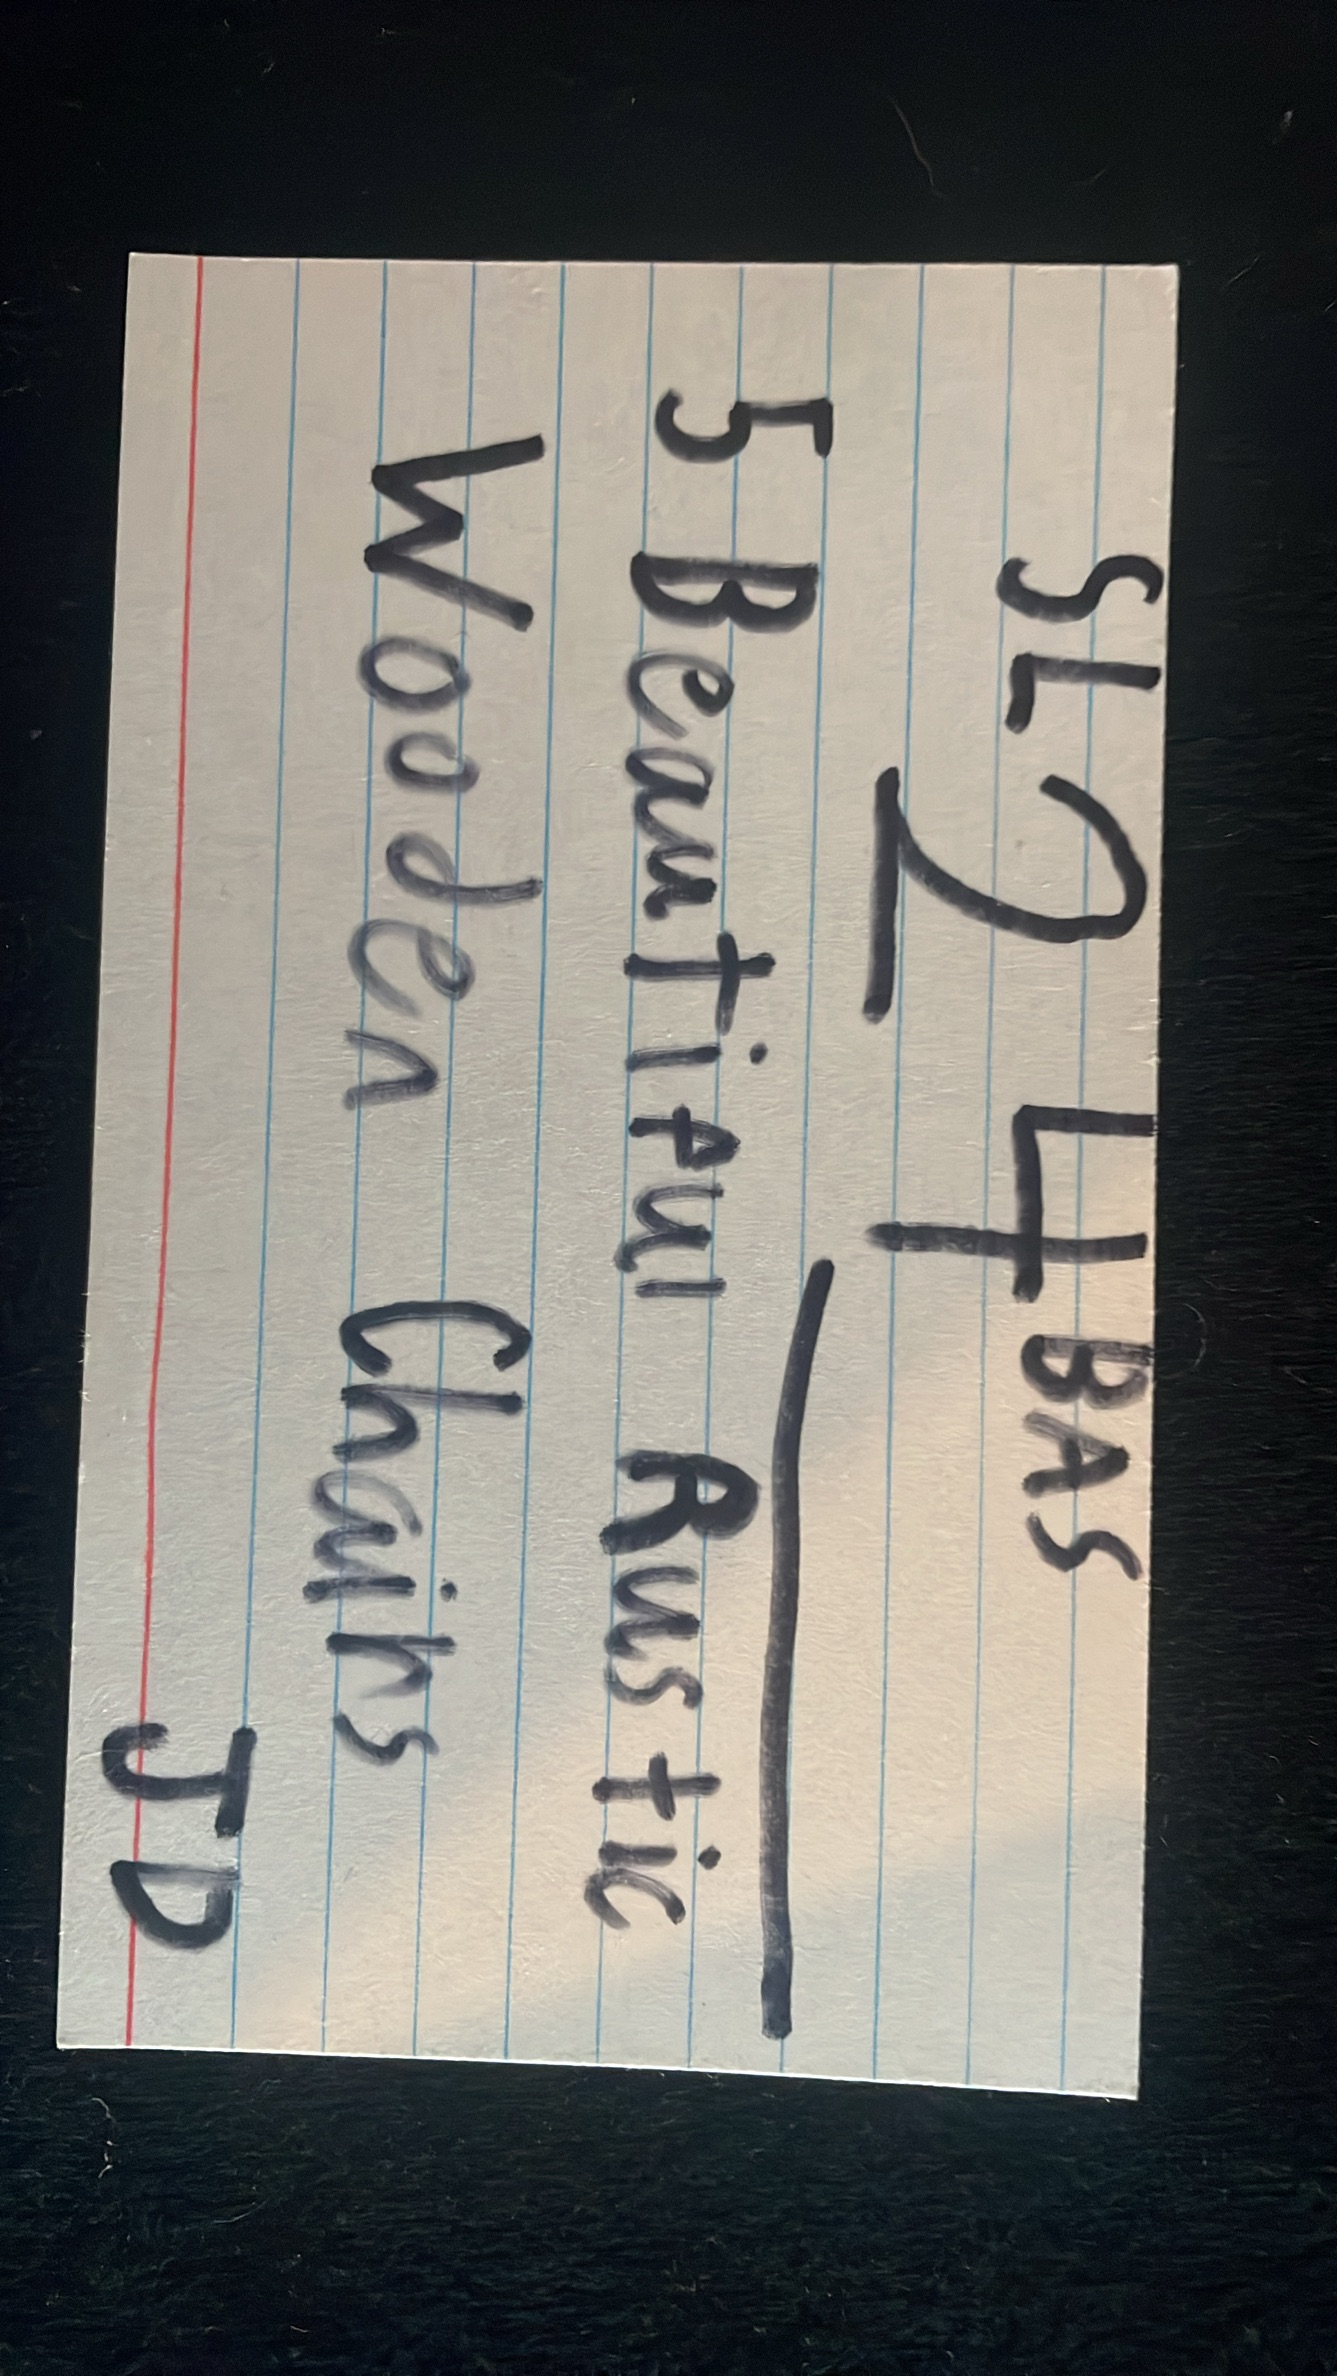 SL 2 4 BAS
5 Beautiful Rustic
Wooden Chairs
JD